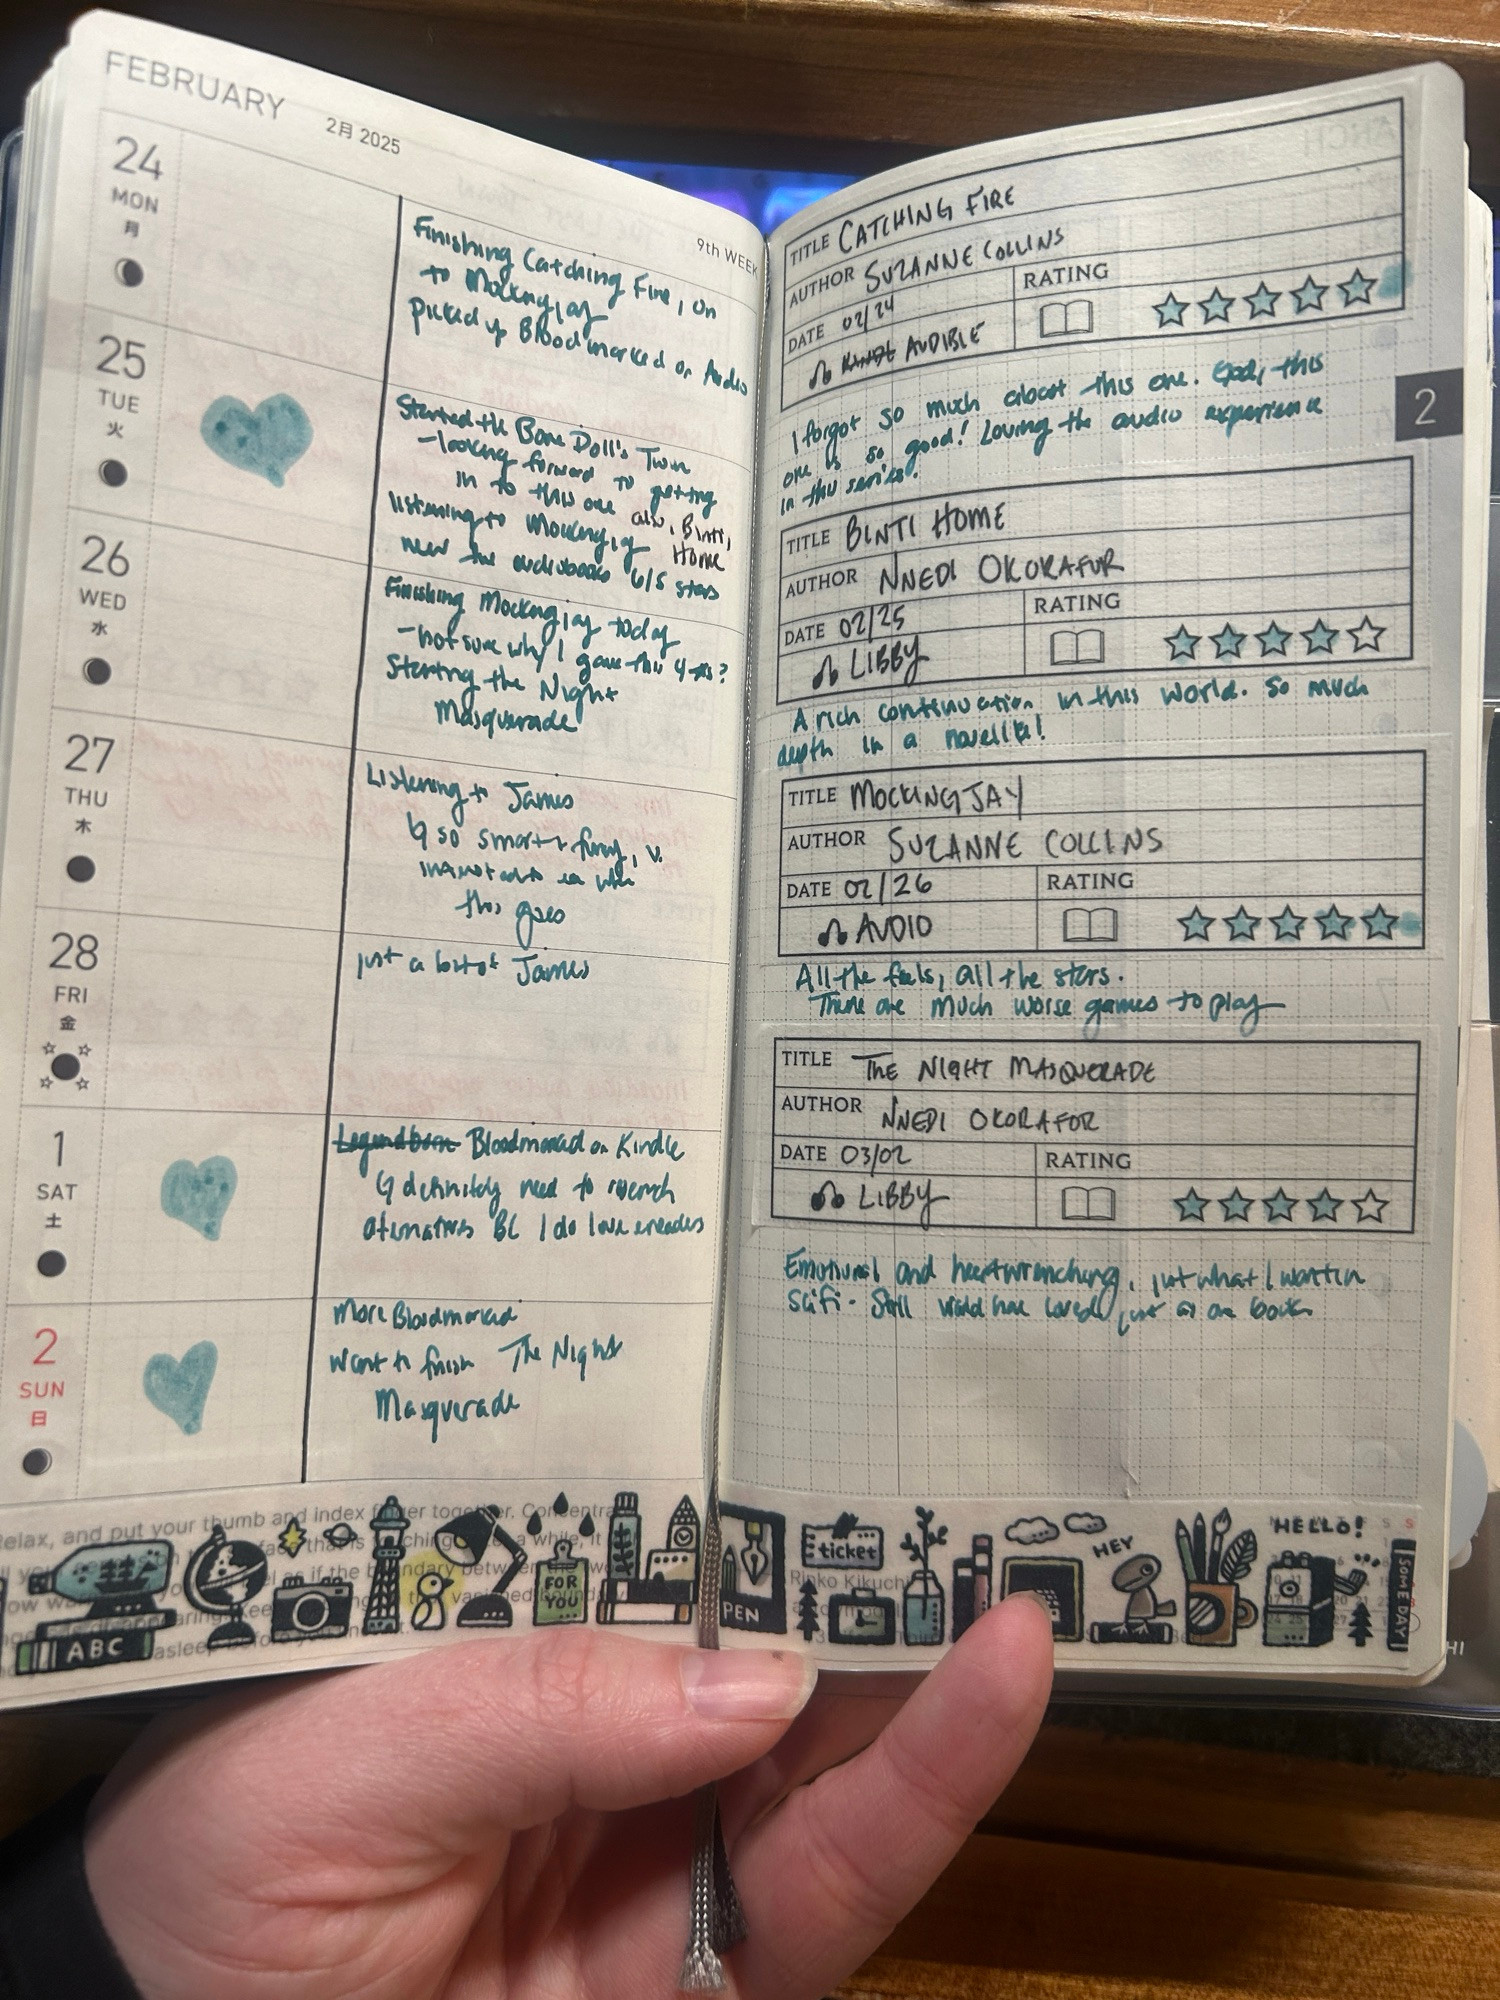 FEBRUARY
2月 2025
9th WEEK
24
MON
月
Finishing Catching Fire, on
to Mockingjay
Picked up Bloodmarked on Audio
25
TUE
火
Started the Bone Doll's Twin
- looking forward to getting
in to this one also, Binti,
listening to Mockingjay Home
now the audiobooks 6/5 stars
26
WED
水
Finishing Mockingjay today
- not sure why I gave this 4 ?
Starting the Night
Masquerade
27
THU
木
Listening to James
↳ so smart + funny, v.
interested to see where
this goes
28
FRI
金
just a lot of James
1
SAT
土
Legendborn Bloodmarked on Kindle
↳ definitely need to research
aternatives BC I do love ereaders
2
SUN
日
More Bloodmarked
Want to finish The Night
Masquerade
Relax, and put your thumb and index finger together.
ABC
FOR
YOU
TITLE CATCHING FIRE
AUTHOR SUZANNE COLLINS
DATE 02/24 RATING
KINDLE AUDIBLE
I forgot so much about this one. God, this
one is so good! Loving the audio experience
in this series!
2
TITLE BINTI HOME
AUTHOR NNEDI OKORAFUR
DATE 02/25 RATING
LIBBY
A rich continuation in this world. So much
depth in a novella!
TITLE MOCKINGJAY
AUTHOR SUZANNE COLLINS
DATE 02/26 RATING
AUDIO
All the feels, all the stars.
There are much worse games to play
TITLE THE NIGHT MASQUERADE
AUTHOR NNEDI OKORAFOR
DATE 03/02 RATING
LIBBY
Emotional and heartwrenching, just what I want in
scifi. Still would have loved just as one book
PEN
ticket
Rinko Kikuchi
HEY
HELLO!
SOME DAY